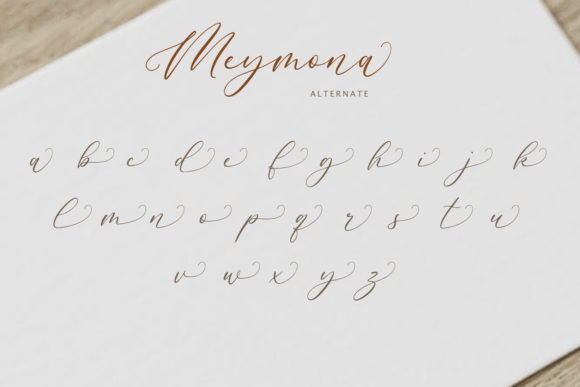 Meymona
ALTERNATE
a b c d e f g h i j k
l m n o p q r s t u
v w x y z